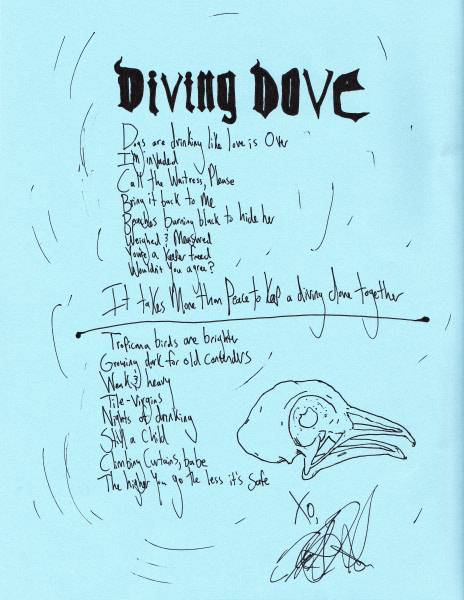 Diving Dove
Dogs are drinking like love is Over
I'm invaded
Call the Waitress, Please
Bring it back to Me
Beaches burning black to hide her
Weighed & Measured
You're a Keeper freed
Wouldn't You agree?
It takes More than Peace to keep a diving dove together
Tropicana birds are brighter
Growing dark for old contenders
Weak & heavy
Tile-Virgins
Nights of drinking
Still a Child
Climbing Curtains, babe
The higher You go the less it's Safe
Xo,